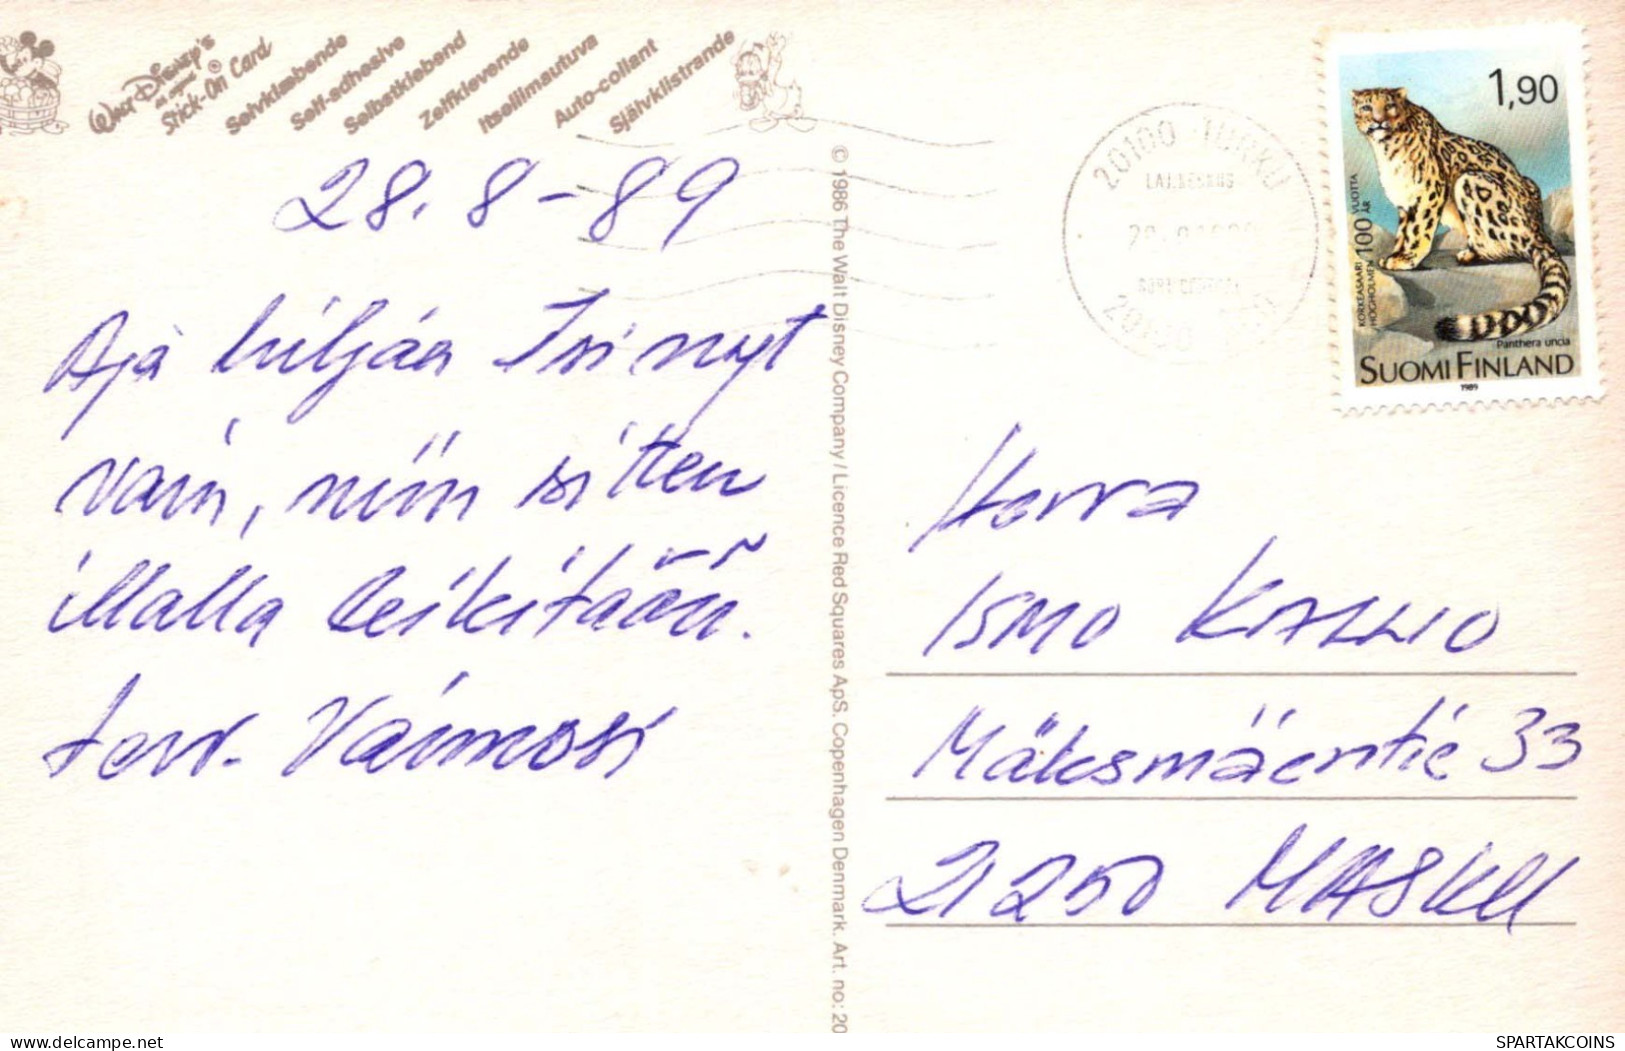 Walt Disney's
Stick-On® Card
Selvklæbende
Self-adhesive
Selbstklebend
Zelfklevende
Itseliimautuva
Auto-collant
Självklistrande
28.8-89
Ajä hiljaa Isi nyt
vain, niin sitten
illalla leikitään.
terv. Väinösi
© 1986 The Walt Disney Company/Licence Red Squares ApS. Copenhagen Denmark. Art. no: 20
20100 TURKU
1,90
KORKEASAARI 100 VUOTTA
HÖGHOLMEN 100 ÅR
Panthera uncia
SUOMI FINLAND
1989
Herra
ISMO KALLIO
Mäksmäentie 33
21250 MASKU
SPARTAKCOINS
www.delcampe.net